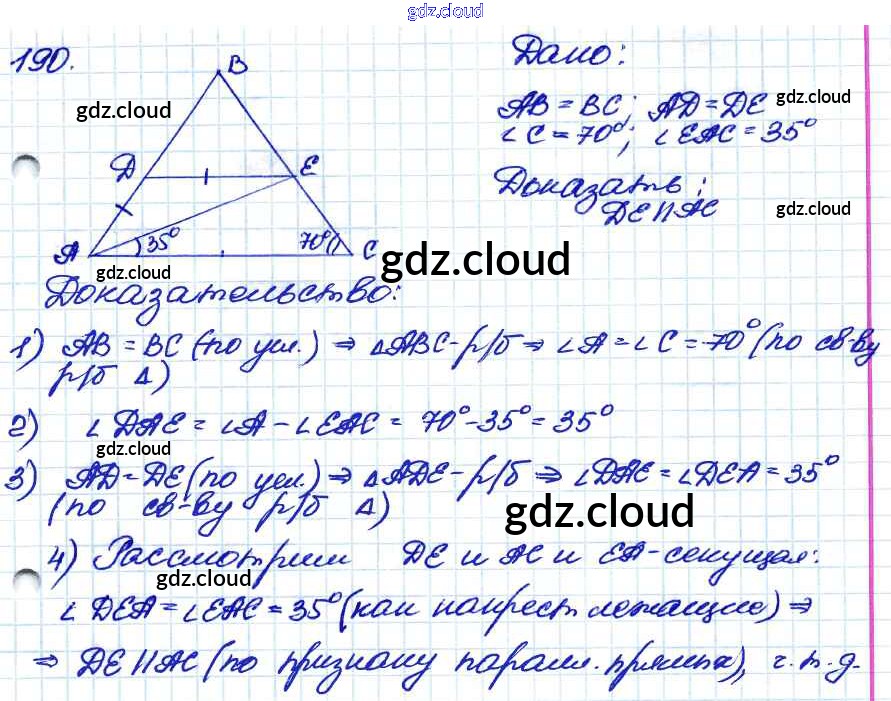 gdz.cloud
190.
B
Дано:
gdz.cloud
AB = BC; AD = DE
gdz.cloud
∠C = 70°; ∠EAC = 35°
D E
Доказать:
DE || AC
gdz.cloud
A 35° 70° C
gdz.cloud
gdz.cloud
Доказательство:
1) AB = BC (по усл.) ⇒ △ABC - р/б ⇒ ∠A = ∠C = 70° (по св-ву
р/б △)
2) ∠DAE = ∠A - ∠EAC = 70° - 35° = 35°
gdz.cloud
3) AD = DE (по усл.) ⇒ △ADE - р/б ⇒ ∠DAE = ∠DEA = 35°
(по св-ву р/б △)
gdz.cloud
4) Рассмотрим DE и AC и EA - секущая:
gdz.cloud
∠DEA = ∠EAC = 35° (как накрест лежащие) ⇒
⇒ DE || AC (по признаку паралл. прямых), ч.т.д.